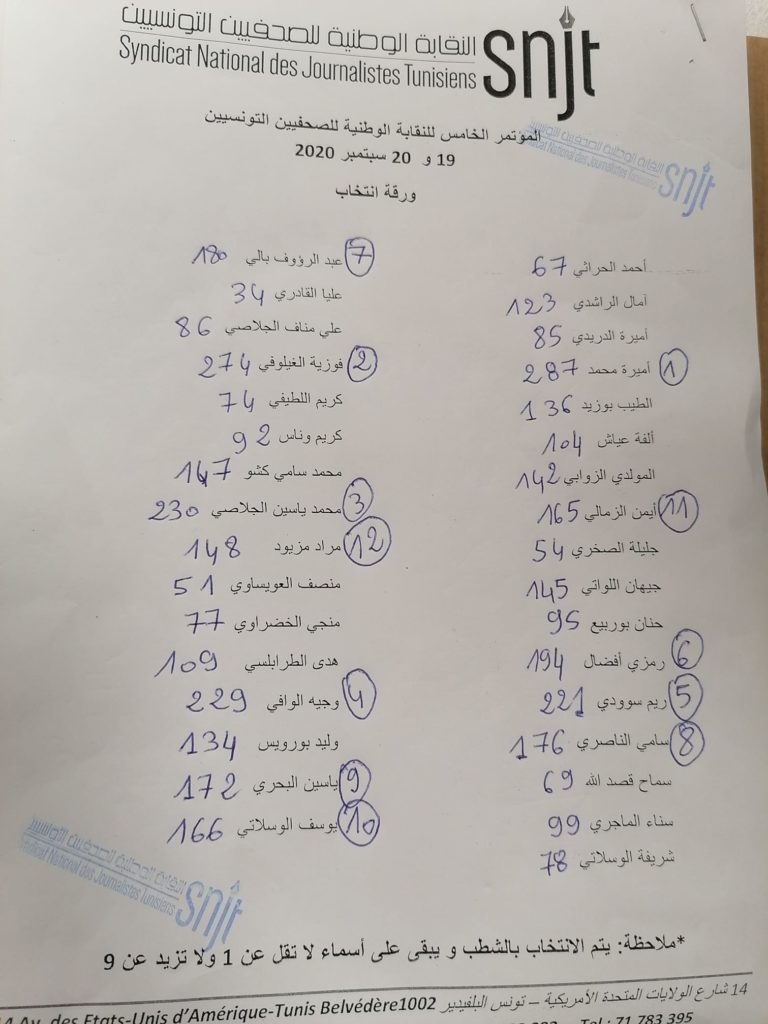 النقابة الوطنية للصحفيين التونسيين
Syndicat National des Journalistes Tunisiens
snjt
المؤتمر الخامس للنقابة الوطنية للصحفيين التونسيين
19 و 20 سبتمبر 2020
ورقة انتخاب
النقابة الوطنية للصحفيين التونسيين
Syndicat National des Journalistes Tunisiens
snjt
أحمد الحراثي 67
آمال الراشدي 123
أميرة الدريدي 85
1 أميرة محمد 287
الطيب بوزيد 136
ألفة عياش 104
المولدي الزوابي 142
11 أيمن الزمالي 165
جليلة الصخري 54
جيهان اللواتي 145
حنان بوربيع 95
6 رمزي أفضال 194
5 ريم سوودي 221
8 سامي الناصري 176
سماح قصد الله 69
سناء الماجري 99
شريفة الوسلاتي 78
7 عبد الرؤوف بالي 180
عليا القادري 34
علي مناف الجلاصي 86
2 فوزية الغيلوفي 274
كريم اللطيفي 74
كريم وناس 92
محمد سامي كشو 147
3 محمد ياسين الجلاصي 230
12 مراد مزيود 148
منصف العويساوي 51
منجي الخضراوي 77
هدى الطرابلسي 109
4 وجيه الوافي 229
وليد بورويس 134
9 ياسين البحري 172
10 يوسف الوسلاتي 166
النقابة الوطنية للصحفيين التونسيين
Syndicat National des Journalistes Tunisiens
snjt
*ملاحظة: يتم الانتخاب بالشطب و يبقى على أسماء لا تقل عن 1 ولا تزيد عن 9
14 شارع الولايات المتحدة الأمريكية – تونس البلفيدير 1002
14 Av. des Etats-Unis d’Amérique-Tunis Belvédère
Tel : 71 783 395